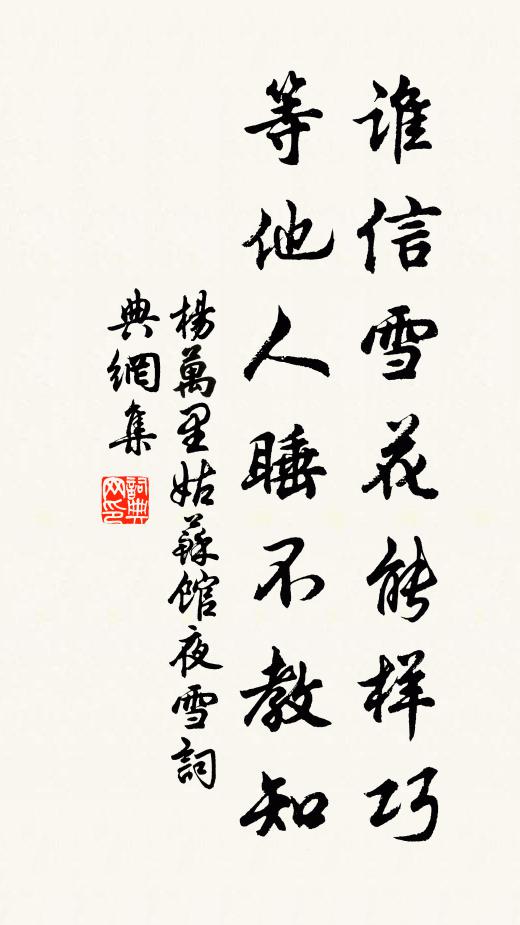 谁信雪花能样巧
等他人睡不教知
楊萬里姑蘇館夜雪詞
典網集
詞典网印